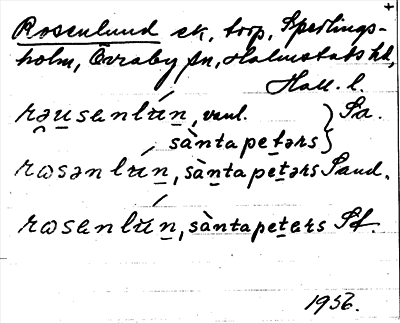 +
Rosenlund ek, torp, Sperlings-
holm, Övraby sn, Halmstads hd,
Hall. l.
rau̯senlún̲, vanl. } Sa.
sàn̲tapet̲ərs }
rɷsənlún̲, sàn̲tapet̲ərs Sand.
rɷsenlún̲, sàn̲tapet̲ers Sf.
1956.